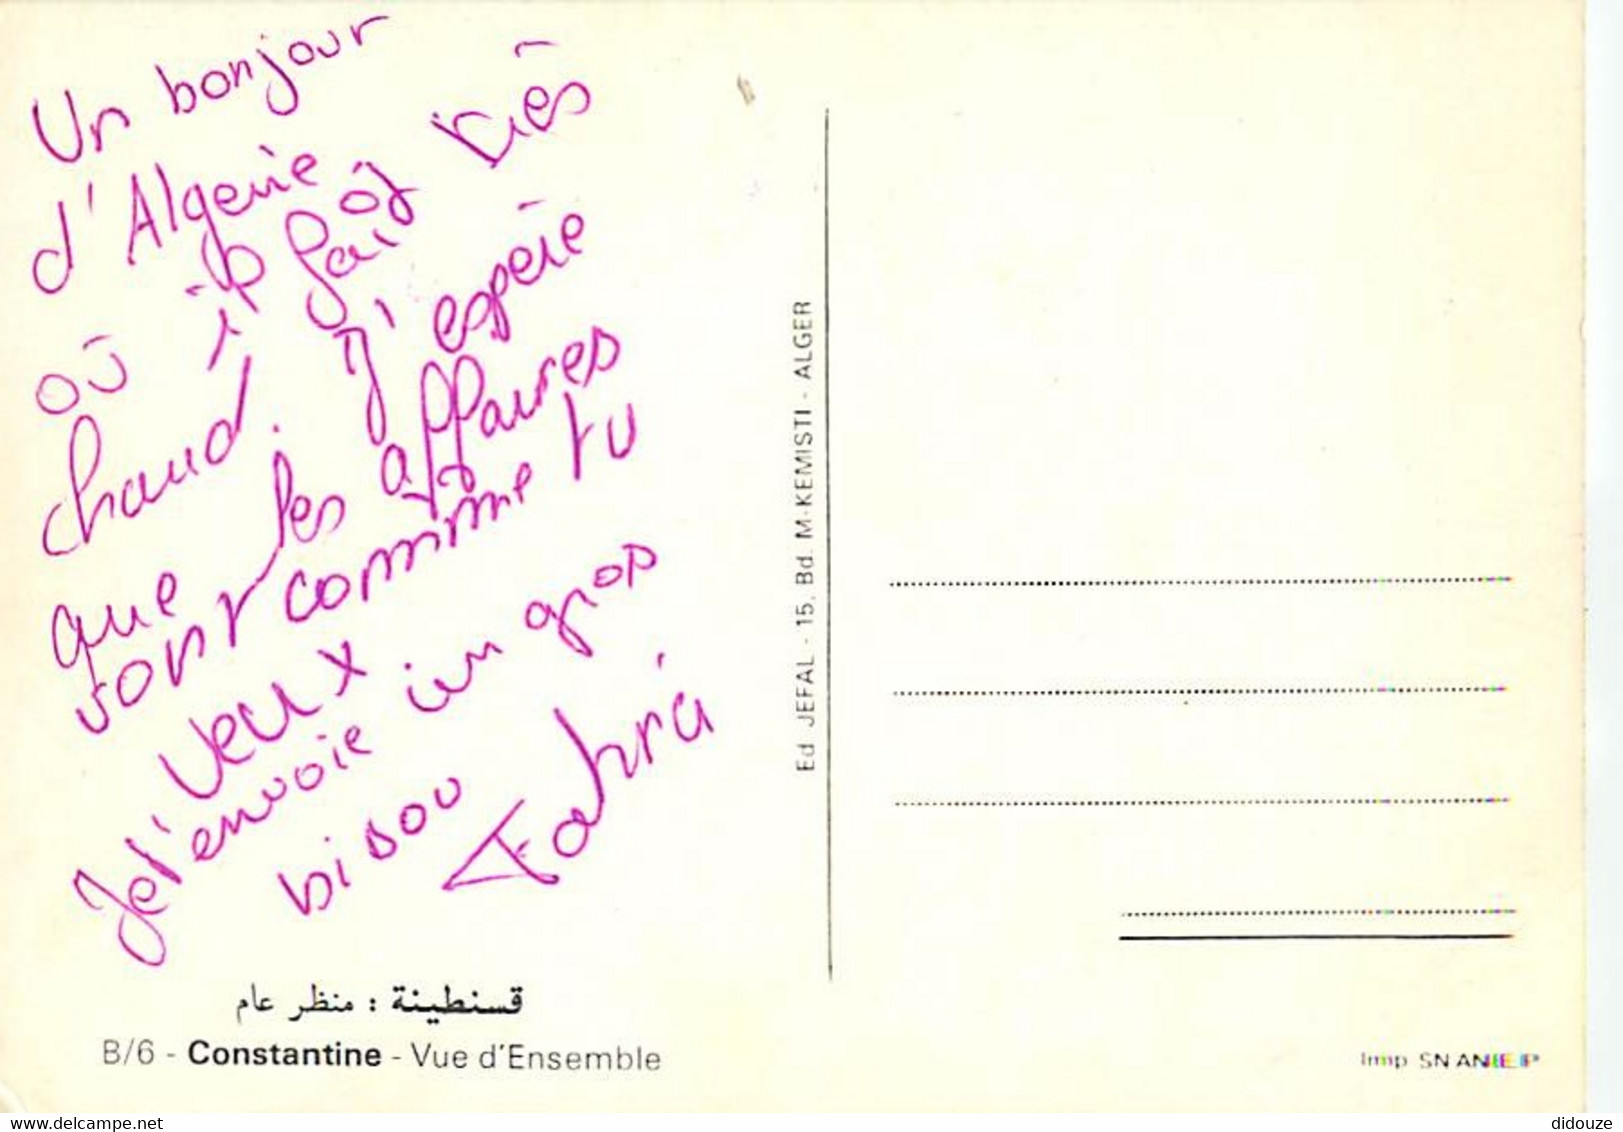 Un bonjour
d'Algerie
où il fait très
chaud. J'espère
que les affaires
vont comme tu
veux
Je t'envoie un gros
bisou
Fahra
قسنطينة : منظر عام
B/6 - Constantine - Vue d'Ensemble
Ed JEFAL - 15, Bd. M-KEMISTI - ALGER
Imp SNANEP
didouze